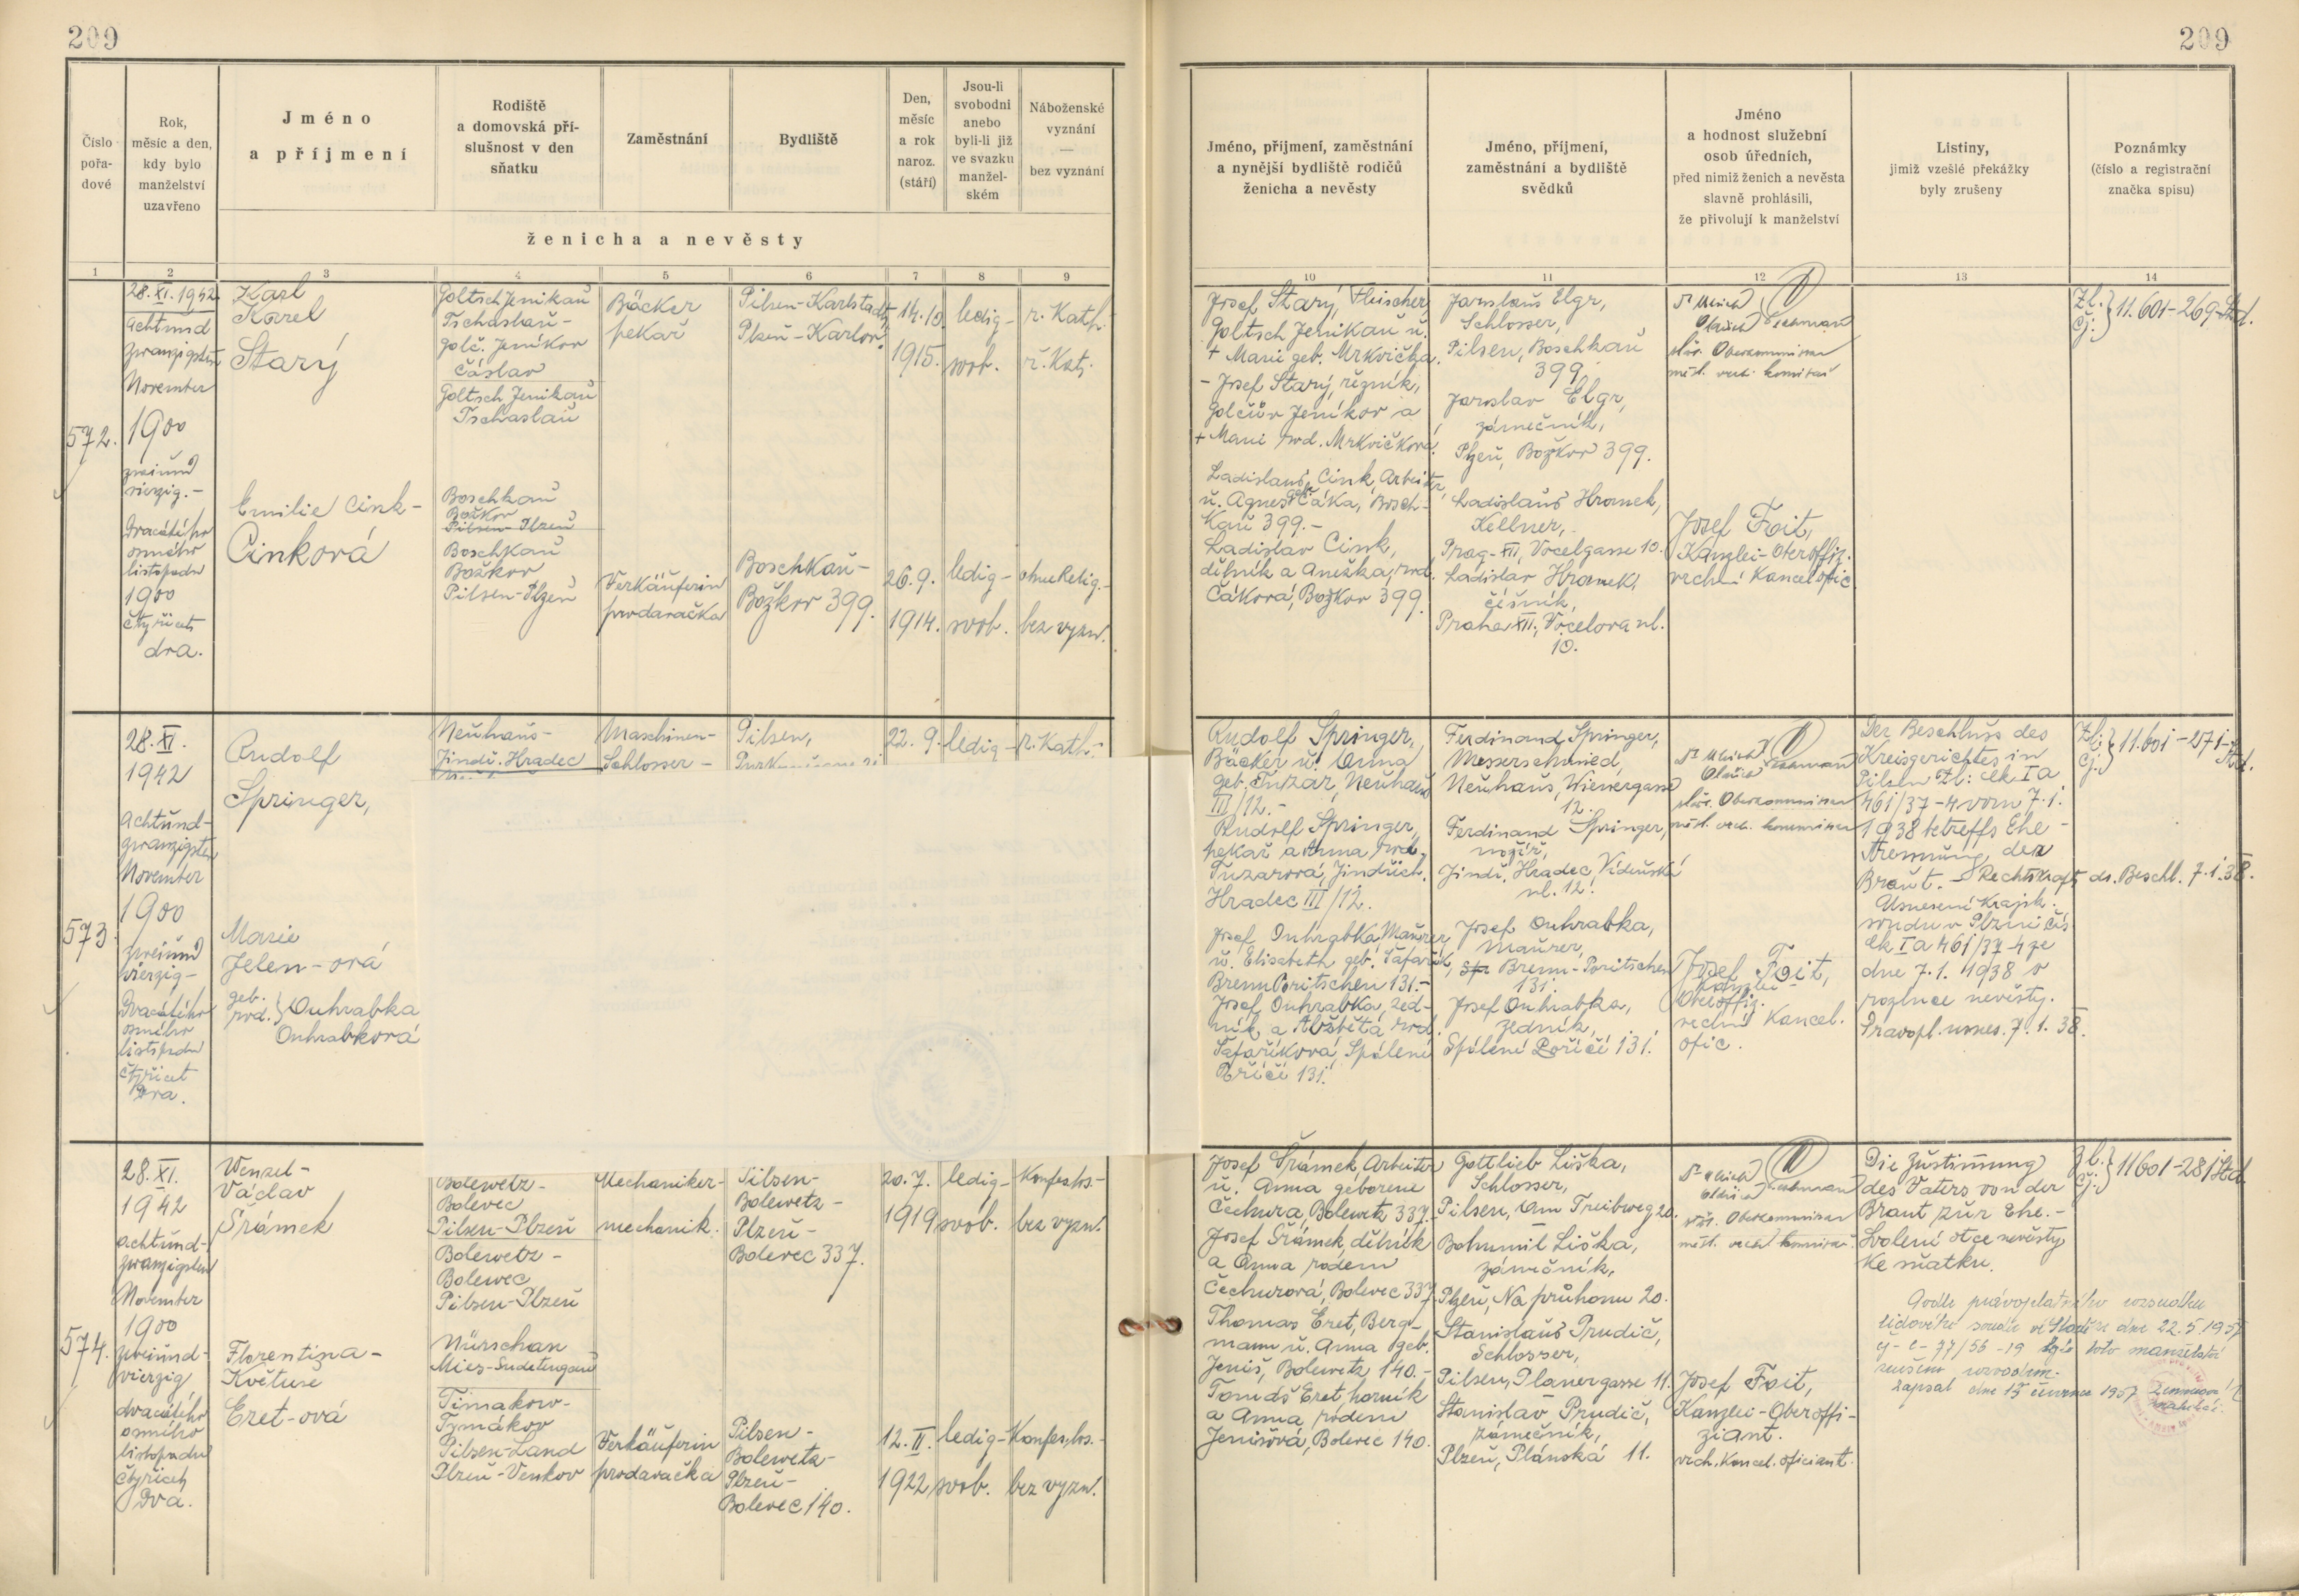 209
209
Číslo
pořa-
dové
Rok,
měsíc a den,
kdy bylo
manželství
uzavřeno
Jméno
a příjmení
Rodiště
a domovská pří-
slušnost v den
sňatku
Zaměstnání
Bydliště
Den,
měsíc
a rok
naroz.
(stáří)
Jsou-li
svobodni
anebo
byli-li již
ve svazku
manžel-
ském
Náboženské
vyznání
—
bez vyznání
ženicha a nevěsty
Jméno, příjmení, zaměstnání
a nynější bydliště rodičů
ženicha a nevěsty
Jméno, příjmení,
zaměstnání a bydliště
svědků
Jméno
a hodnost služební
osob úředních,
před nimiž ženich a nevěsta
slavně prohlásili,
že přivolují k manželství
Listiny,
jimiž vzešlé překážky
byly zrušeny
Poznámky
(číslo a registrační
značka spisu)
1 2 3 4 5 6 7 8 9 10 11 12 13 14
572.
28.XI.1942
achtund
zwanzigsten
November
1900
zweiund
vierzig.-
Dvacátého
osmého
listopadu
1900
čtyřicet
dva.
Karl
Karel
Starý
Goltsch Jenikau
Tschaslau-
Golč. Jeníkov
Čáslav
Goltsch Jenikau
Tschaslau
Bäcker
pekař
Pilsen-Karlstadt,
Plzeň-Karlov.
14.10.
1915.
ledig-
svob.
r. Kath.
ř. Kat.
Emilie Cink-
Cinková
Boschkau
Božkov
Pilsen-Plzeň
Boschkau
Božkov
Pilsen-Plzeň
Verkäuferin
prodavačka
Boschkau-
Božkov 399.
26.9.
1914.
ledig-
svob.
ohne Relig.-
bez vyzn.
Josef Starý, Fleischer,
Goltsch Jenikau u.
+ Marie geb. Mrkvička.
- Josef Starý, řezník,
Golčův Jeníkov a
+ Marie rod. Mrkvičková.
Ladislaus Cink, Arbeiter,
u. Agnes Čáka, Bosch-
kau 399.-
Ladislav Cink,
dělník a Anežka, rod.
Čáková, Božkov 399.
Jaroslaus Elgr,
Schlosser,
Pilsen, Boschkau
399.
Jaroslav Elgr,
zámečník,
Plzeň, Božkov 399.
Ladislaus Hromek,
Kellner,
Prag-XII, Vocelgasse 10.
Ladislav Hromek,
číšník,
Praha XII., Vocelova ul.
10.
Oberkommissar
Josef Foit,
Kanzlei-Oberoffiz.
vrchní Kancel. ofic.
Zl.:
Čj.: } 11.601-269-Std.
573
28.XI.
1942
achtund-
zwanzigsten
November
1900
zweiund
vierzig-
Dvacátého
osmého
listopadu
čtyřicet
Dva.
Rudolf
Springer,
Neuhaus-
Jindř. Hradec
Maschinen-
Schlosser-
Pilsen,
22.9.
ledig-
r. Kath.-
Marie
Jelen-ová
geb.
rod. } Ouhrabka
Ouhrabková
Rudolf Springer,
Bäcker u. Anna
geb. Tuzar, Neuhaus
III/12.-
Rudolf Springer,
pekař a Anna rod.
Tuzarová, Jindřich.
Hradec III/12.
Josef Ouhrabka, Maurer,
u. Elisabeth geb. Šafařík,
Brenn Poritschen 131.-
Josef Ouhrabka, zed-
ník a Alžběta rod.
Šafaříková, Spálené
Poříčí 131.
Ferdinand Springer,
Messerschmied,
Neuhaus, Wienergasse
12.
Ferdinand Springer,
nožíř,
Jindř. Hradec, Vídeňská
ul. 12.
Josef Ouhrabka,
Maurer,
Brenn-Poritschen
131.
Josef Ouhrabka,
zedník,
Spálené Poříčí 131.
Oberkommissar
Josef Foit,
Kanzlei
Oberoffiz.
vrchní Kancel.
ofic.
Der Beschluss des
Kreisgerichtes in
Pilsen Zl.: Ck Ia
461/37-4 vom 7.1.
1938 betreffs Ehe-
trennung der
Braut. - Rechtskraft ds. Beschl. 7.1.38.
Usnesení Krajsk.
soudu v Plzni čís.
Ck Ia 461/37-4 ze
dne 7.1. 1938 o
rozluce nevěsty.
Pravopl. usnes. 7.1.38.
Zl.:
Čj.: } 11.601-271-Std.
574.
28.XI.
1942
achtund-
zwanzigsten
November
1900
zweiund-
vierzig
dvacátého
osmého
listopadu
čtyřicet
Dva.
Wenzel-
Václav
Šrámek
Bolewetz-
Bolevec
Pilsen-Plzeň
Bolewetz-
Bolewec
Pilsen-Plzeň
Mechaniker-
mechanik.
Pilsen-
Bolewetz-
Plzeň-
Bolevec 337.
20.7.
1919
ledig-
svob.
Konfeslos-
bez vyzn.
Florentina-
Květuše
Eret-ová
Nürschan
Mies-Sudetengau
Timakow-
Tymákov
Pilsen-Land
Plzeň-Venkov
Verkäuferin
prodavačka
Pilsen-
Bolewetz-
Plzeň-
Bolevec 140.
12.II.
1922
ledig-
svob.
Konfeslos.-
bez vyzn.
Josef Šrámek, Arbeiter
u. Anna geborene
Čechura, Bolewetz 337.-
Josef Šrámek, dělník
a Anna rodem
Čechurová, Bolevec 337.
Thomas Eret, Berg-
mann u. Anna geb.
Jeniš, Bolewetz 140.-
Tomáš Eret, horník
a Anna rodem
Jenišová, Bolevec 140.
Gottlieb Liška,
Schlosser,
Pilsen, Am Treibweg 20.
Bohumil Liška,
zámečník,
Plzeň, Na průhonu 20.
Stanislaus Prudič,
Schlosser,
Pilsen, Planergasse 11.
Stanislav Prudič,
zámečník,
Plzeň, Plánská 11.
Oberkommissar
Josef Foit,
Kanzlei-Oberoffi-
ziant.
vrch. Kancel. oficiant.
Die Zustimmung
des Vaters von der
Braut zur Ehe.-
Svolení otce nevěsty
ke sňatku.
Zl.:
Čj.: } 11601-281 Std.
Podle pravoplatného rozsudku
lidového soudu ve dne 22.5.1957
čj- C- 77/56-19 bylo toto manželství
zrušeno rozvodem.
Zapsal dne 15 července 1957